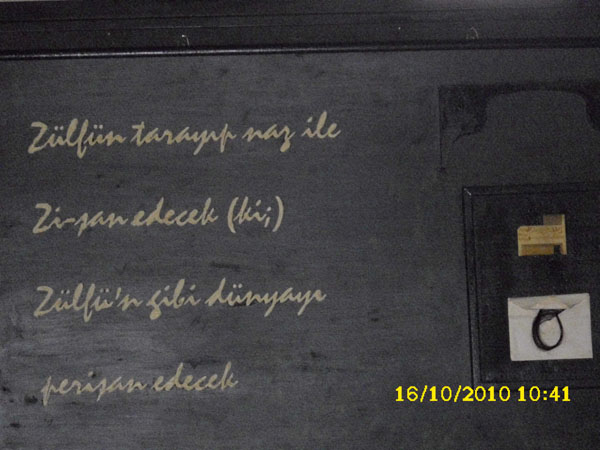 Zülfün tarayıp naz ile
Zi-şan edecek (ki;)
Zülfü'n gibi dünyayı
perişan edecek
16/10/2010 10:41